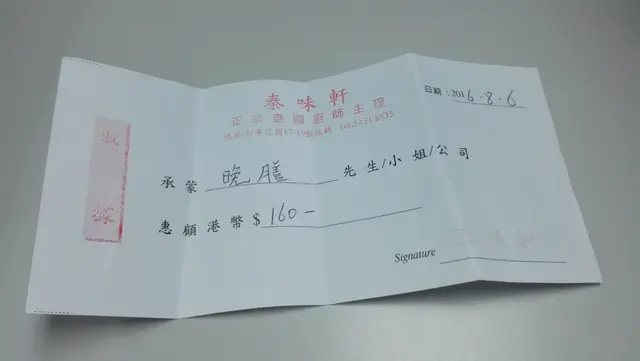 泰味軒
正宗泰國廚師主理
Tel:2451 8835
日期:2016-8-6
收據
承蒙 晚膳 先生/小姐/公司
惠顧港幣$ 160-
Signature 泰味軒